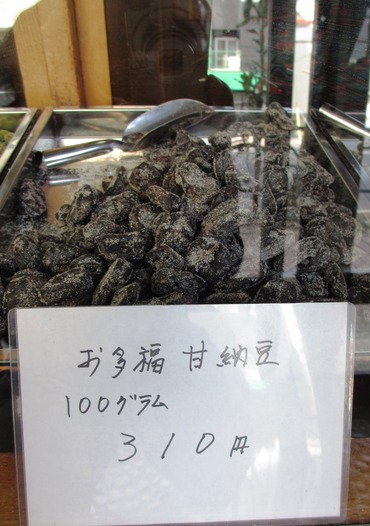 お多福 甘納豆
100グラム
310円